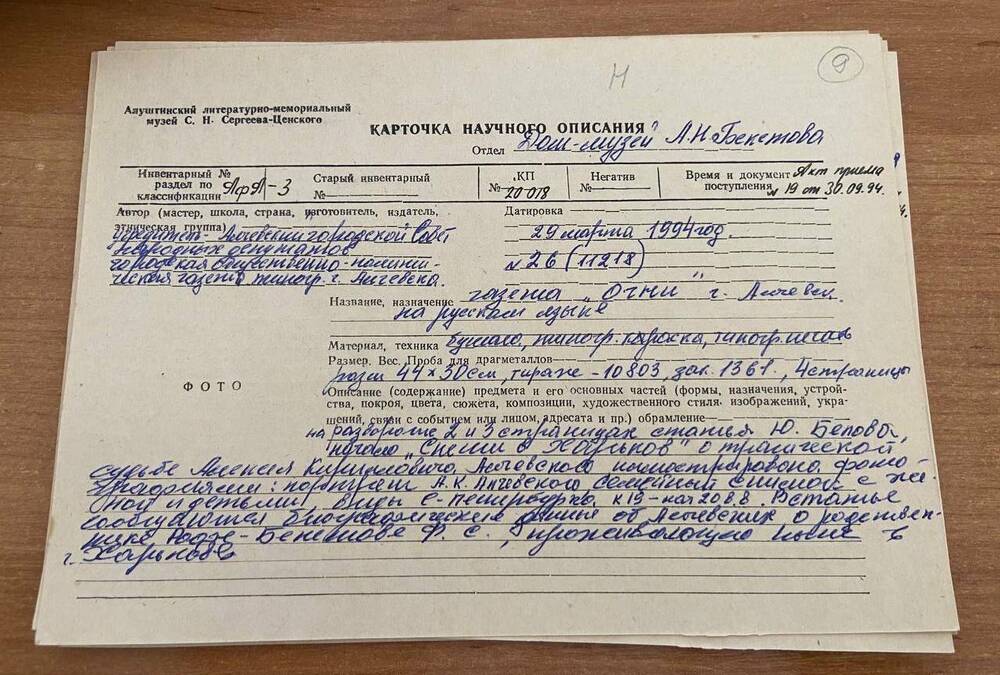 Н
9
Алуштинский литературно-мемориальный
музей С. Н. Сергеева-Ценского
КАРТОЧКА НАУЧНОГО ОПИСАНИЯ
Отдел Дом-музей А.Н. Бекетова
Инвентарный №
раздел по
классификации АфА-3
Старый инвентарный
№
КП
№ 20 018
Негатив
№
Время и документ Акт приема
поступления № 19 от 30.09.94.
Автор (мастер, школа, страна, изготовитель, издатель,
этническая группа)
учредитель - Алчевский городской Совет
народных депутатов
городская общественно-полити-
ческая газета типогр. г. Алчевска.
Датировка
29 марта 1994 год.
№ 26 (11218)
Название, назначение газета "Огни" г. Алчевск.
на русском языке
Материал, техника бумага, типогр. краска, типогр. печать
Размер. Вес. Проба для драгметаллов
разм 44 × 30 см, тираж - 10803, зак. 1361, 4 страницы
ФОТО
Описание (содержание) предмета и его основных частей (формы, назначения, устрой-
ства, покроя, цвета, сюжета, композиции, художественного стиля изображений, укра-
шений, связи с событием или лицом, адресата и пр.) обрамление
на развороте 2 и 3 страницах статья Ю. Белова,
начало о трагической
судьбе Алексея Кирилловича Алчевского иллюстрировано фото-
графиями: портрет А.К. Алчевского семейный снимок с же-
ной и детьми, виды С-Петербурга к 19-нач 20 в.в. В статье
сообщаются биографические данные от Алчевских о родствен-
нике Ф. С., проживающего ныне в
г. Харькове